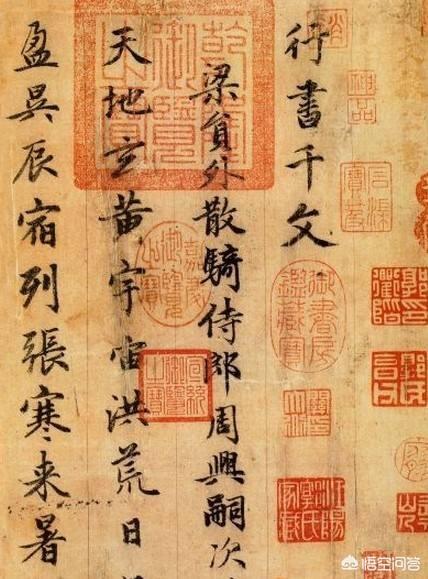 行書千文
梁貟外散騎侍郎周興嗣次
天地玄黄宇宙洪荒日
盈昃辰宿列張寒来暑
乾隆御覽之寶
神品
石渠寶笈
嘉慶御覽之寶
御書房鑑藏寶
宣統御覽之寶
悟空问答